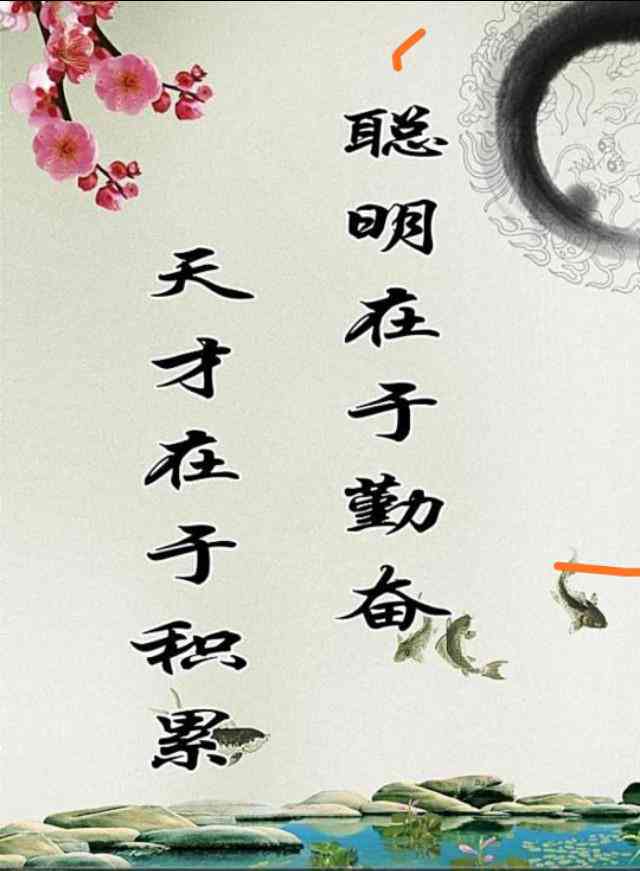 聪明在于勤奋
天才在于积累